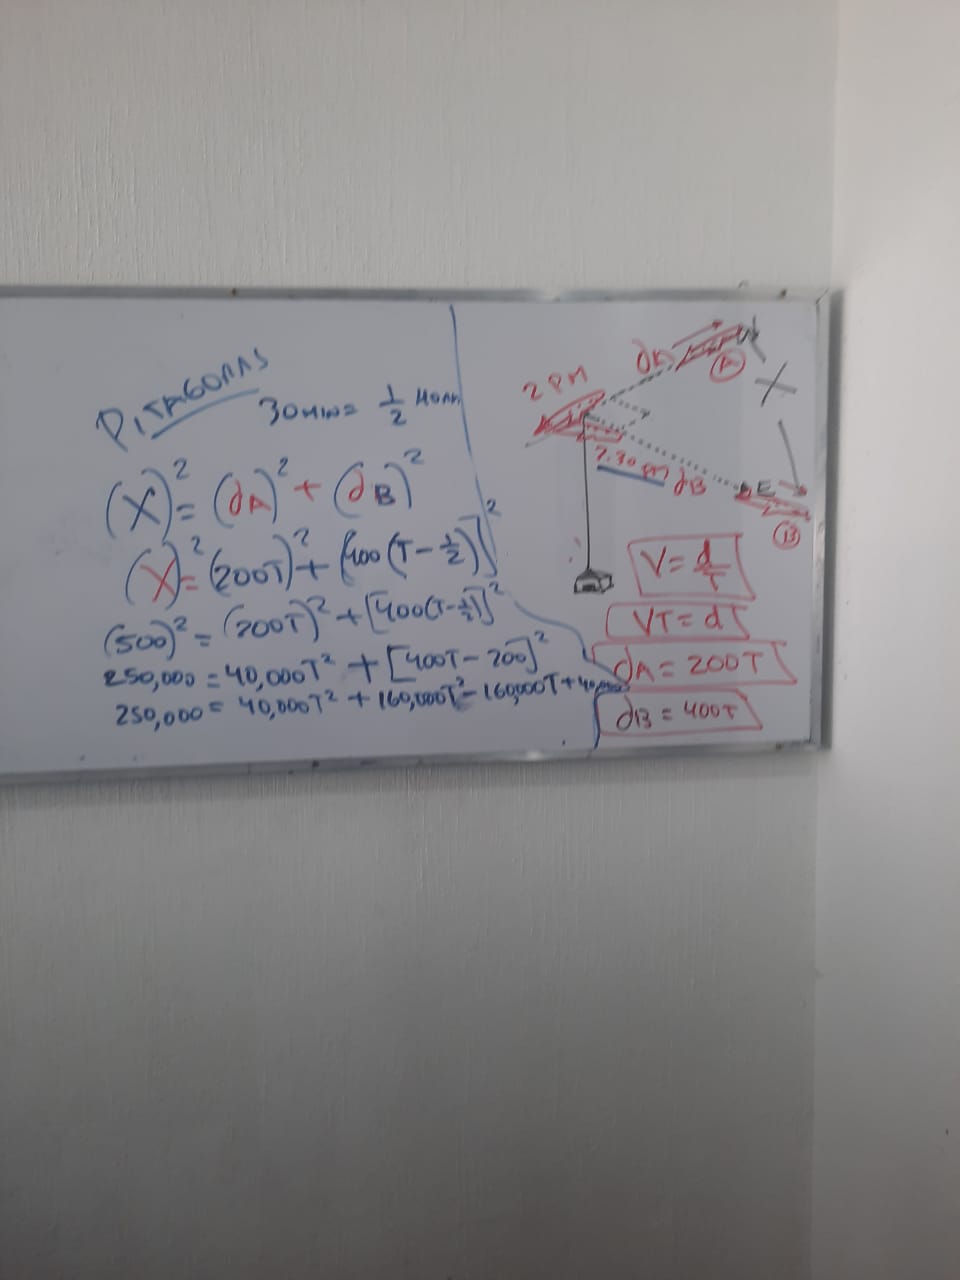 PITAGORAS
30 MIN = 1/2 HORA
(X)² = (dA)² + (dB)²
(X)² = (200T)² + [400(T - 1/2)]²
(500)² = (200T)² + [400(T - 1/2)]²
250,000 = 40,000T² + [400T - 200]²
250,000 = 40,000T² + 160,000T² - 160,000T + 40,000
2 PM
dA
N
A
X
2:30 PM
dB
E
B
V = d/T
VT = d
dA = 200T
dB = 400T